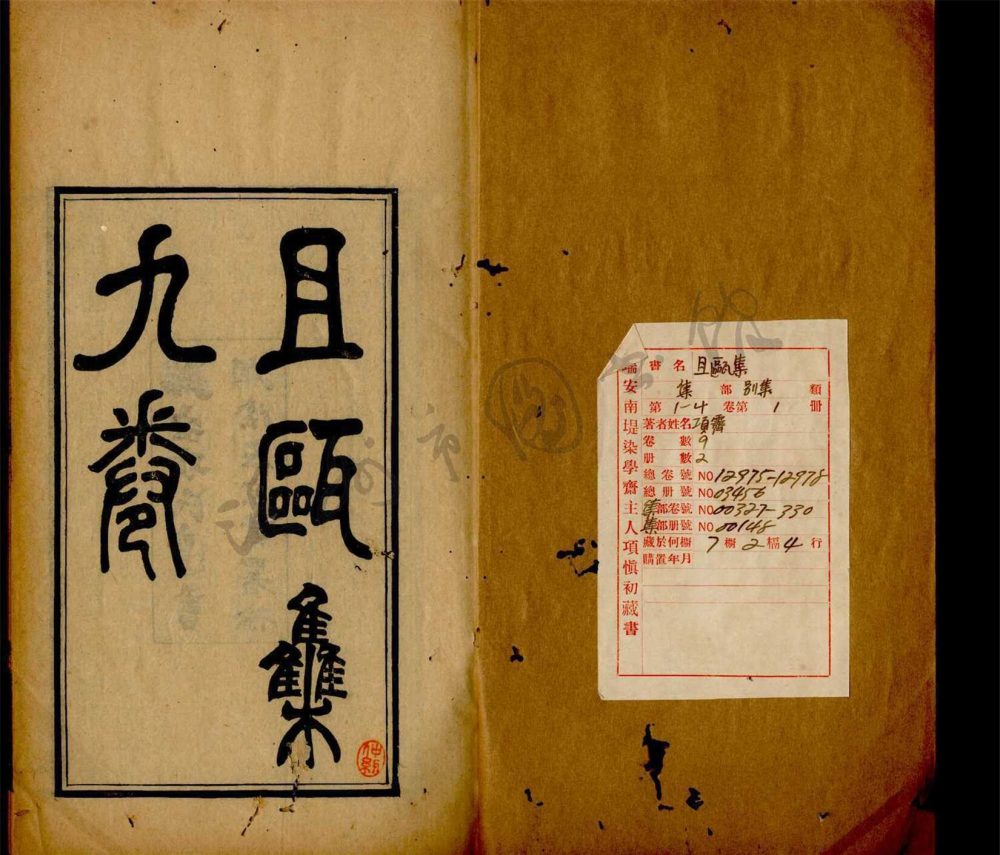 瑞安南堤染學齋主人項愼初藏書
書名 且甌集
集 部 別集 類
第 1-4 卷第 1 冊
著者姓名 項霽
卷數 9
册數 2
總卷號 NO 12975-12978
總册號 NO 03456
集部卷號 NO 00327-330
集部册號 NO 00148
藏於何櫥 7 櫥 2 槅 4 行
購置年月
且甌集
九卷